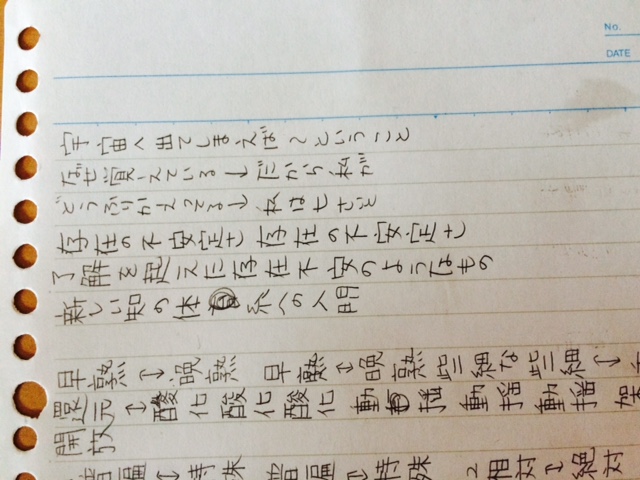 No.
DATE
宇宙へ出てしまえば〜ということ
なぜ震えている↓だから私が
どうふりかえってる↓私は七さと
存在の不安定さ存在の不安定さ
了解を超えた存在不安のようなもの
新しい知の体系への人間
早熟↓晩熟 早熟↓晩熟些細な些細↓
還元↓酸化酸化酸化 動揺動揺動揺
開放
普遍↓特殊 普遍↓特殊 2相対↓絶対